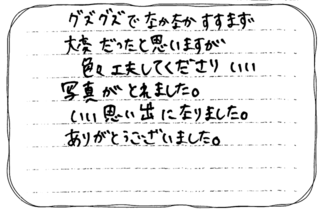 グズグズでなかなかすすまず
大変だったと思いますが
色々工夫してくださりいい
写真がとれました。
いい思い出になりました。
ありがとうございました。